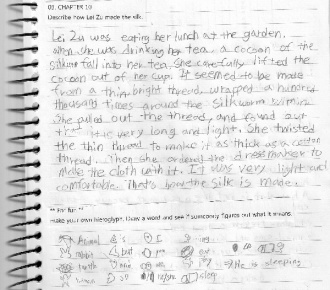 00. CHAPTER 10
Describe how Lei Zu made the silk.
Lei Zu was eating her lunch at the garden.
When she was drinking her tea, a cocoon of the
silkworm fall into her tea. She carefully lifted the
cocoon out of her cup. It seemed to be made
from a thin, bright thread, wrapped a hundred
thousand times around the silkworm within.
She pulled out the thread, and found out
that it is very long and light. She twisted
the thin thread to make it as thick as a cotton
thread. Then she ordered the dressmaker to
make the cloth with it. It was very light and
comfortable. That's how the silk is made.
** For fun **
Make your own hieroglyph. Draw a word and see if somebody figures out what it means.
Animal is I
but
He is sleeping
he/she sleep